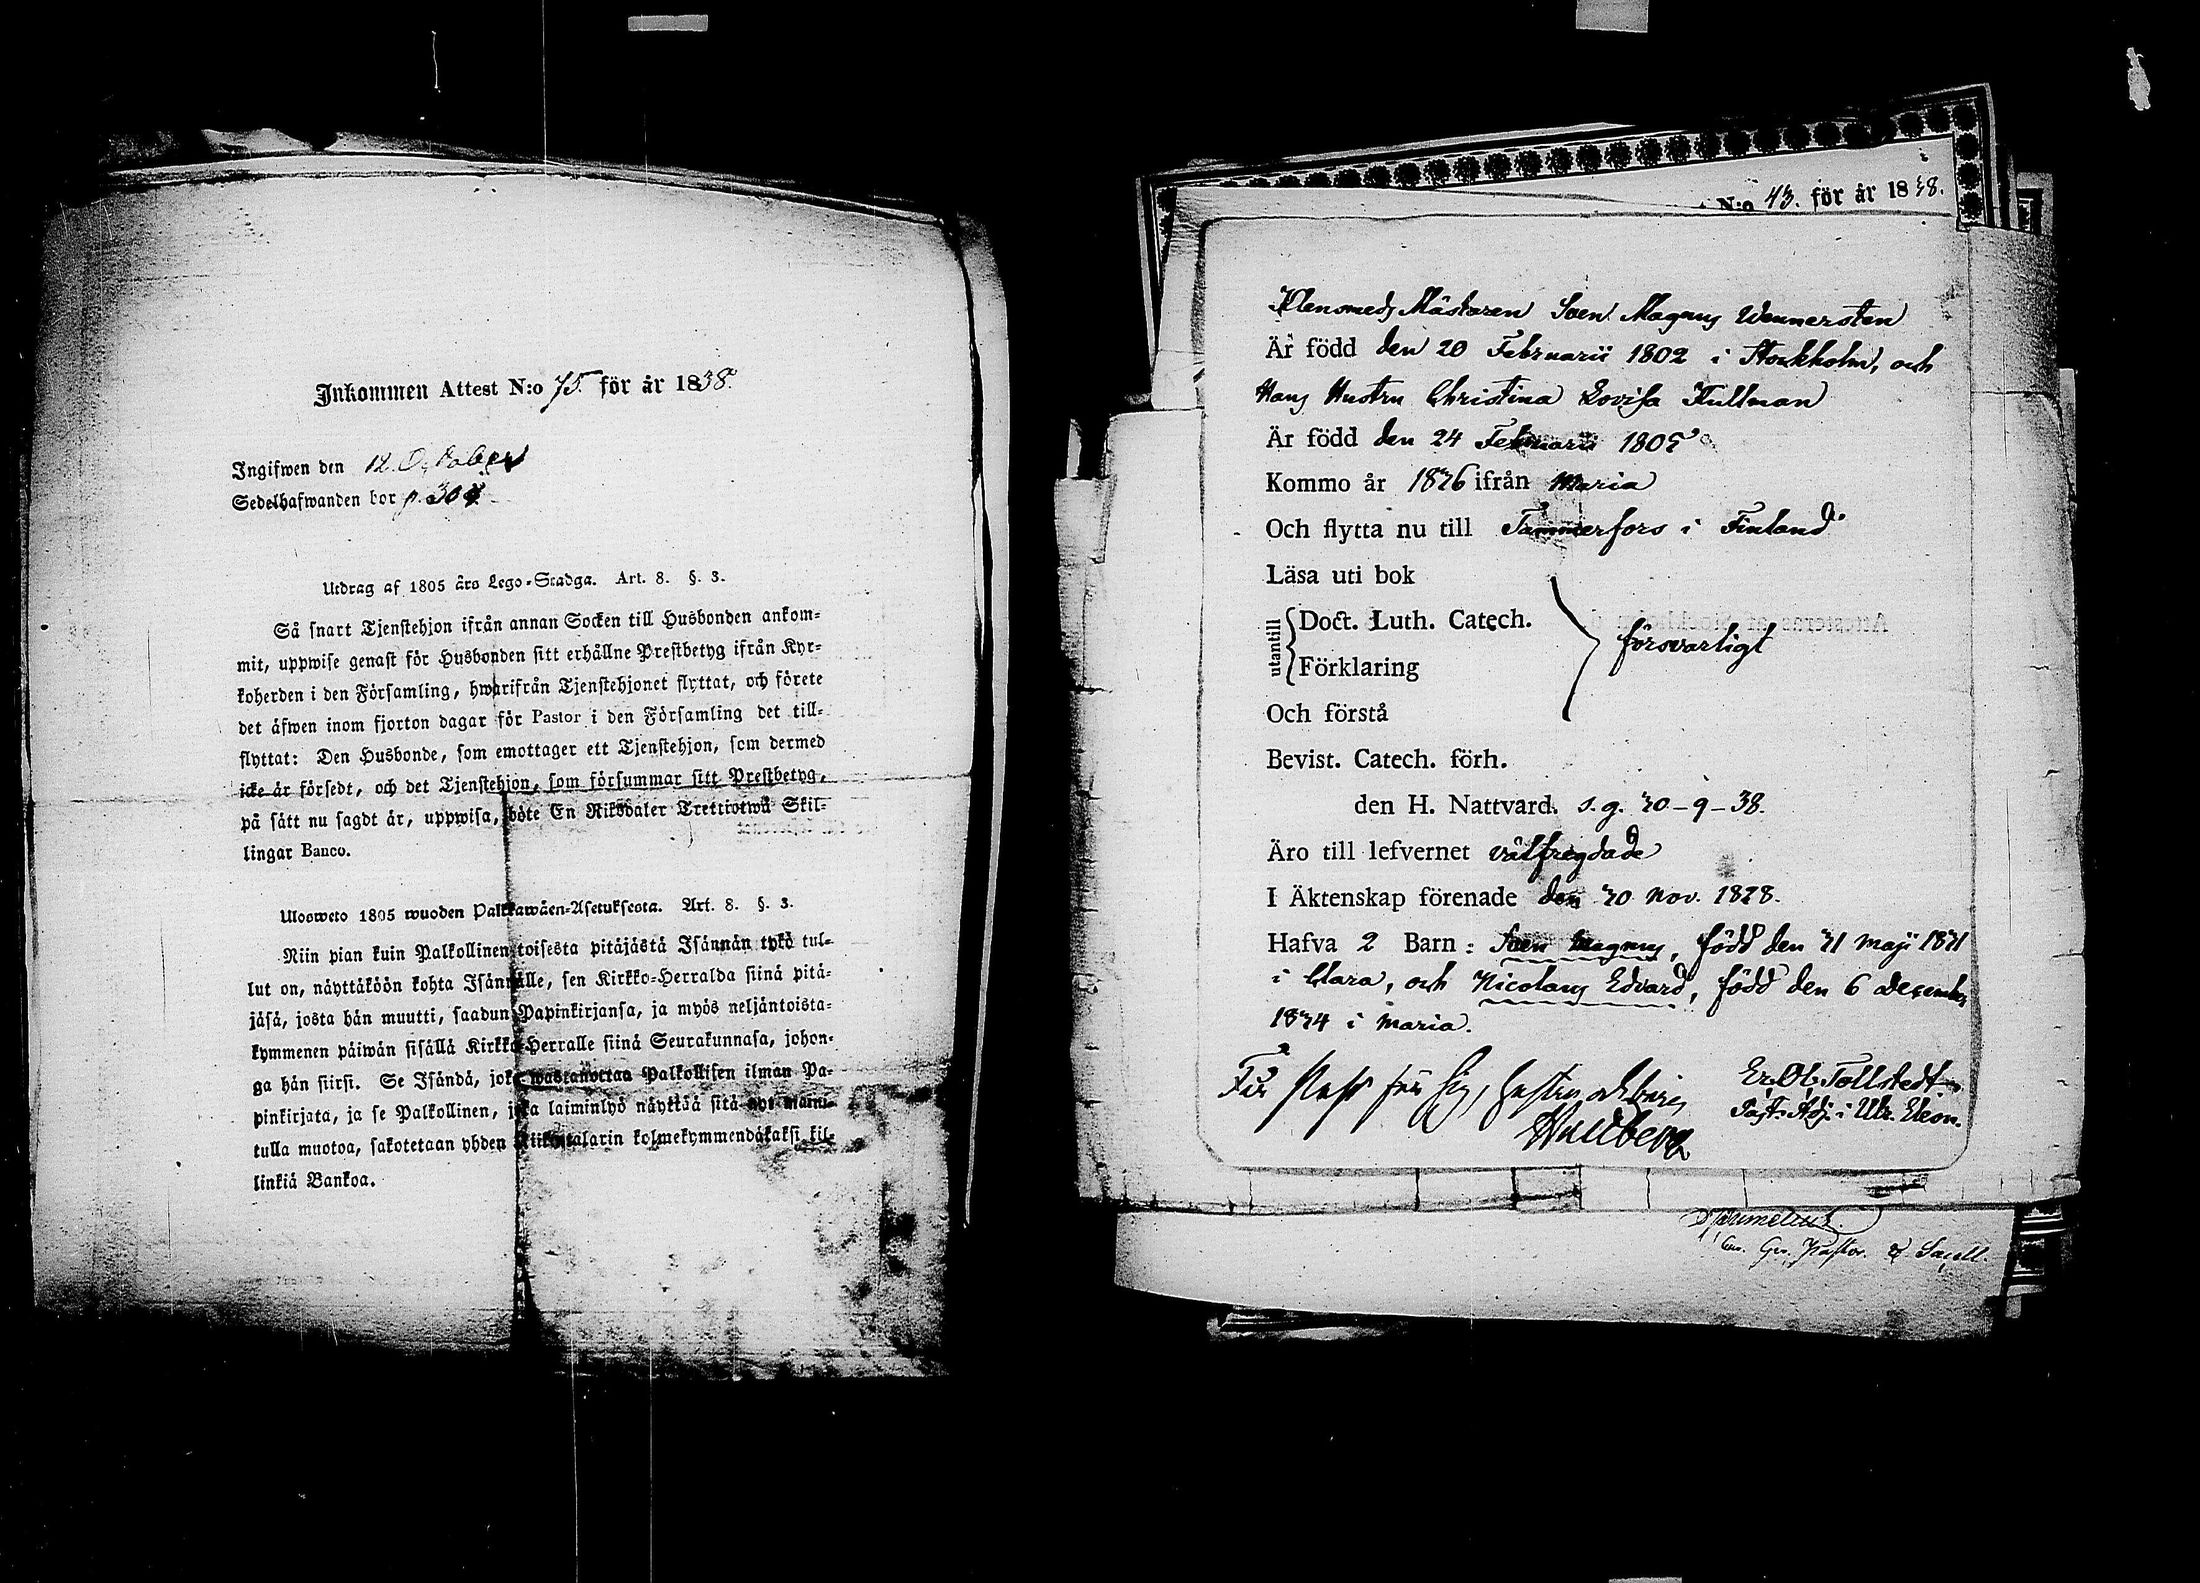 Inkommen Attest N:o 75. för år 1838.
Ingifwen den 12. October
Sedelhafwanden bor p. 304
Utdrag af 1805 års Lego-Stadga. Art. 8. §. 3.
Så snart Tjenstehjon ifrån annan Socken till Husbonden ankom-
mit, uppwise genast för Husbonden sitt erhållne Prestbetyg ifrån Kyr-
koherden i den Församling, hwarifrån Tjenstehjonet flyttat, och förete
det äfwen inom fjorton dagar för Pastor i den Församling det till-
flyttat: Den Husbonde, som emottager ett Tjenstehjon, som dermed
icke är försedt, och det Tjenstehjon, som försummar sitt Prestbetyg,
på sätt nu sagdt är, uppwisa, böte En Riksdaler Trettiotwå Skil-
lingar Banco.
Ulosweto 1805 wuoden Palkkawäen-Asetuksesta. Art. 8. §. 3.
Niin pian kuin Palkollinen toisesta pitäjästä Isännän tykö tul-
lut on, näyttäköön kohta Isännälle, sen Kirkko-Herralda siinä pitä-
jäsä, josta hän muutti, saadun Papinkirjansa, ja myös neljäntoista-
kymmenen päiwän sisällä Kirkko-Herralle siinä Seurakunnasa, johon-
ga hän siirsi. Se Isändä, joka wastanottaa Palkollisen ilman Pa-
pinkirjata, ja se Palkollinen, joka laiminlyö näyttää sitä nyt maini-
tulla muotoa, sakotetaan yhden Riikintalarin kolmekymmendäkaksi kil-
linkiä Bankoa.
N:o 43. för år 1838.
Klensmeds Mästaren Sven Magnus Wennersten
Är född den 20 Februarii 1802 i Stockholm, och
Hans Hustru Christina Lovisa Kullman
Är född den 24 Februarii 1805
Kommo år 1836 ifrån Maria
Och flytta nu till Tammerfors i Finland
Läsa uti bok
utantill
Doct. Luth. Catech.
försvarligt
Förklaring
Och förstå
Bevist. Catech. förh.
den H. Nattvard. s. g. 30-9-38.
Äro till lefvernet välfregdade
I Äktenskap förenade den 30 Nov. 1828.
Hafva 2 Barn: Sven Magnus, född den 31 Maji 1831
i Clara, och Nicolaus Edvard, född den 6 December
1834 i Maria.
Er. Ol. Tollstedt
Past. Adj. i Ulr. Eleon.